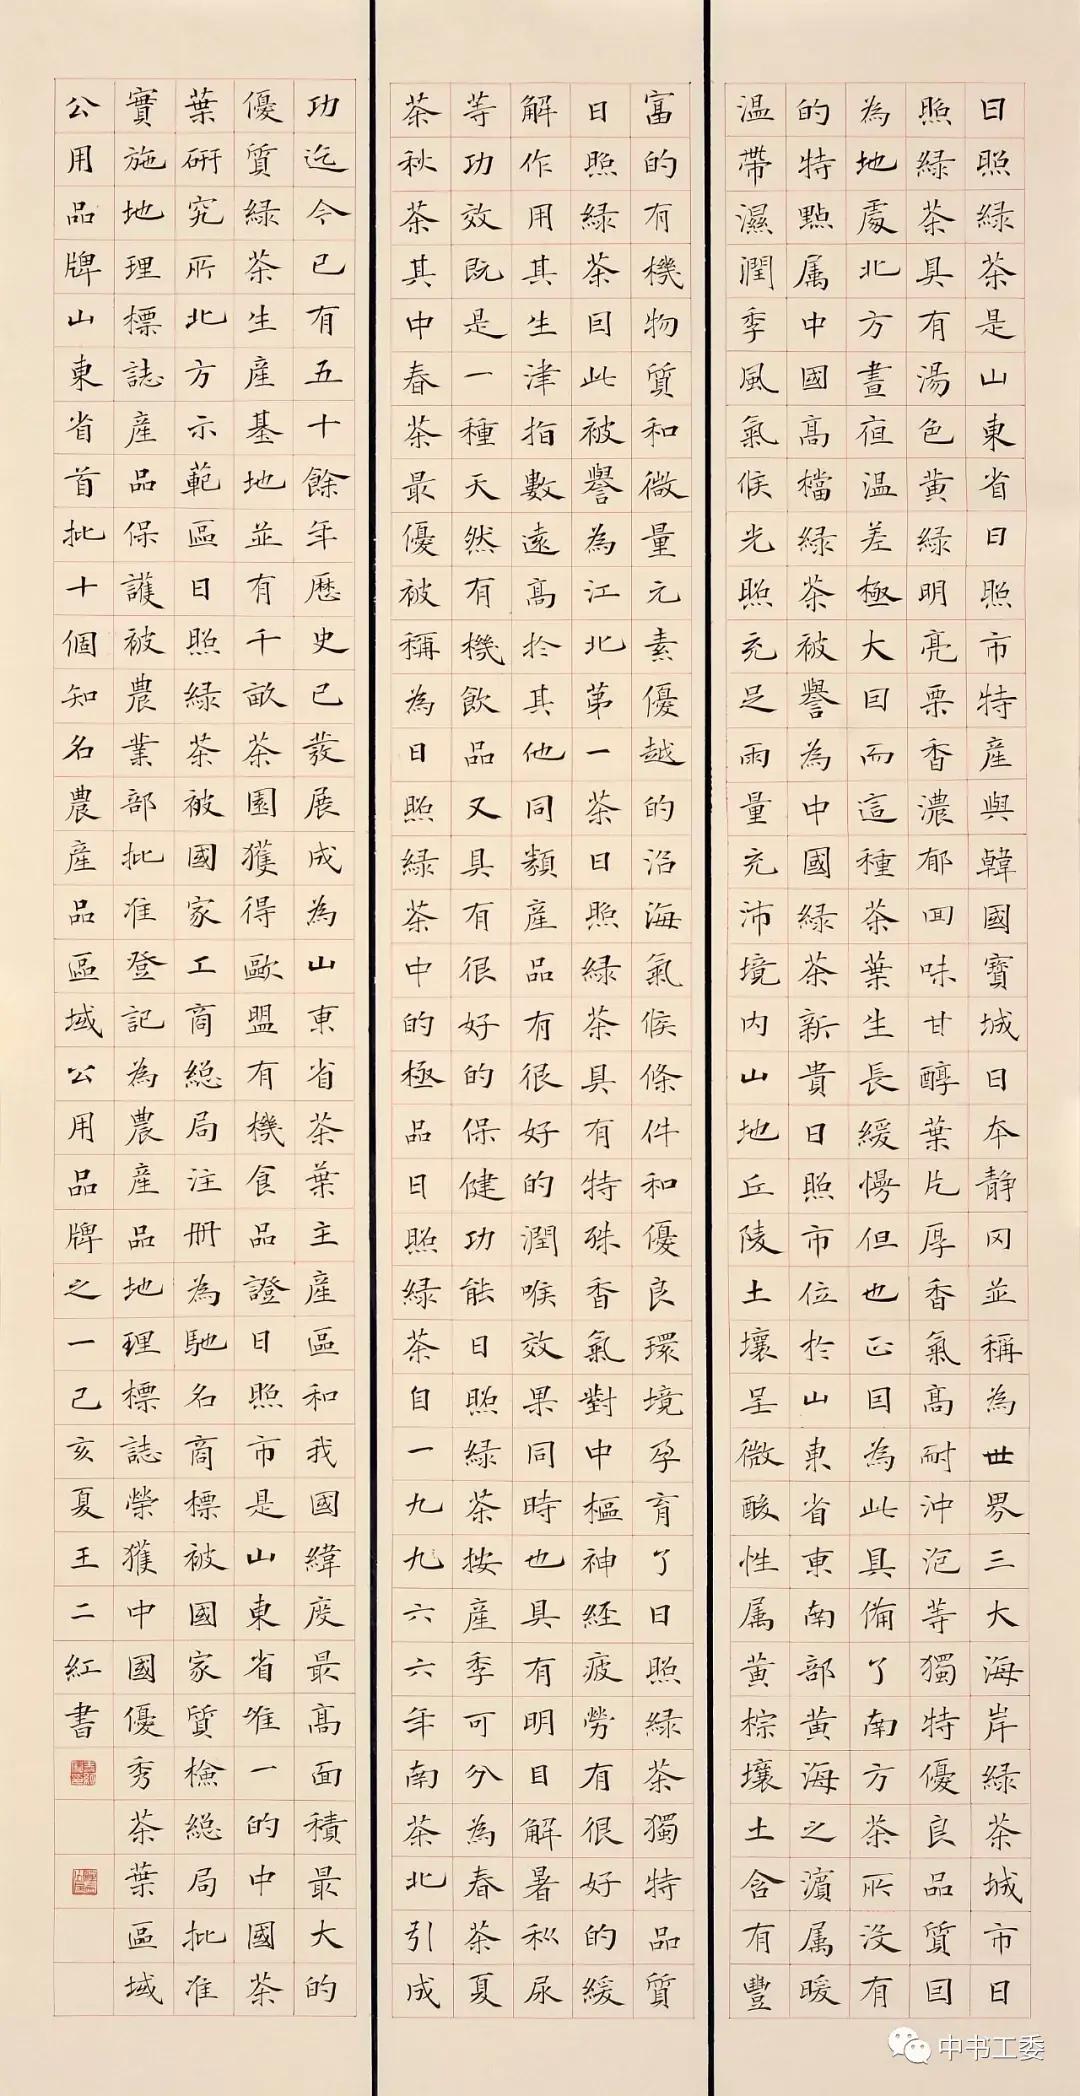 日照綠茶是山東省日照市特産與韓國寶城日本静冈並稱為世界三大海岸綠茶城市日
照綠茶具有湯色黄綠明亮栗香濃郁回味甘醇葉片厚香氣高耐沖泡等獨特優良品質因
為地處北方晝夜温差極大因而這種茶葉生長緩慢但也正因為此具備了南方茶所没有
的特點属中國高檔綠茶被譽為中國綠茶新貴日照市位於山東省東南部黄海之濱属暖
温帶濕潤季風氣候光照充足雨量充沛境内山地丘陵土壤呈微酸性属黄棕壤土含有豐
富的有機物質和微量元素優越的沿海氣候條件和優良環境孕育了日照綠茶獨特品質
日照綠茶因此被譽為江北第一茶日照綠茶具有特殊香氣對中樞神经疲勞有很好的緩
解作用其生津指數遠高於其他同類産品有很好的潤喉效果同時也具有明目解暑利尿
等功效既是一種天然有機飲品又具有很好的保健功能日照綠茶按産季可分為春茶夏
茶秋茶其中春茶最優被稱為日照綠茶中的極品日照綠茶自一九九六六年南茶北引成
功迄今已有五十餘年歷史已發展成為山東省茶葉主産區和我國緯度最高面積最大的
優質綠茶生産基地並有千畝茶園獲得歐盟有機食品證日照市是山東省唯一的中國茶
葉研究所北方示範區日照綠茶被國家工商総局注册為馳名商標被國家質檢総局批准
實施地理標誌産品保護被農業部批准登記為農産品地理標誌榮獲中國優秀茶葉區域
公用品牌山東省首批十個知名農産品區域公用品牌之一己亥夏王二紅書
中书工委